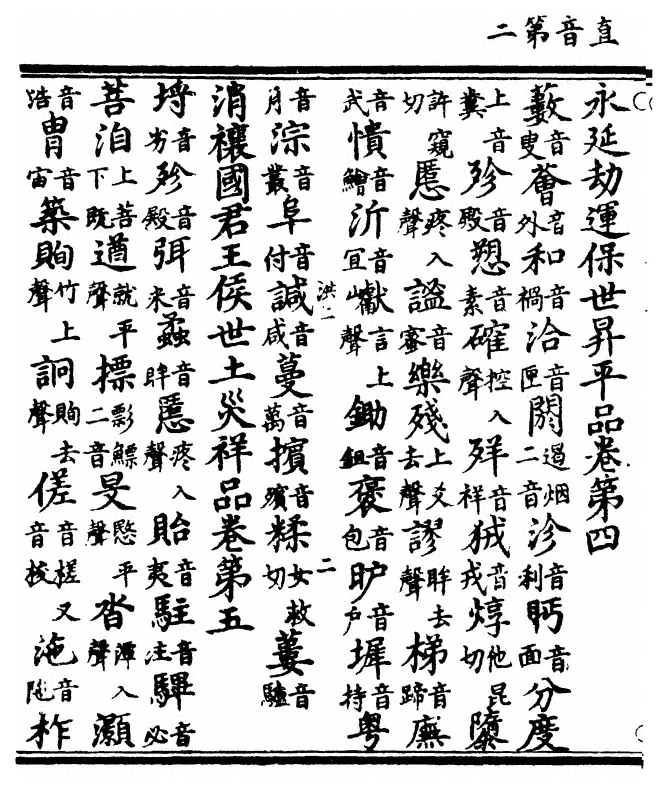 直音第二
永延劫運保世昇平品卷第四
藪音叟薈音外和音禍洽音匣閼遏烟二音沴音利眄音面分度
上音糞殄音殿愬音素確控入聲音祥狨音戎焞他昆切隳
許窺切慝疼入聲謐音蜜樂殘上爻去聲謬眸去聲梯音蹄廡
音武憒音鱠沂音宜巘言上聲鋤音鉏褒音包昈音戶墀音持粤
音月淙音叢阜音付諴音咸蔓音萬擯音殯糅女救切蔞音驢
洪二
二
消禳國君王侯世土災祥品卷第五
埒音劣殄音殿弭音米蟊音眸慝疼入聲貽音夷駐音注驆音必
菩洎上菩下既遒就平聲摽影鰾二音旻愍平聲沓潭入聲灝
音浩胄音宙築賙竹上聲詗賙去聲傞音搓又音梭沲音陀柞